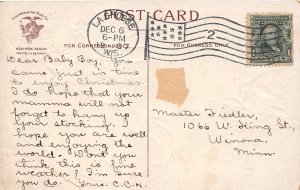 POST CARD
LA CROSSE
DEC 6
6-PM
WIS.
2
FOR CORRESPONDENCE
FOR ADDRESS ONLY
NEW YORK BERLIN
Dear Baby Boy. You
came just in time
to enjoy Christmas.
I do hope that your
mamma will not
forget to hang up
your stocking. I
hope you are well
and enjoying the
world. Don't you
think this is fine
weather? I'm sure I
do. Yours. C.C.H.
Master Fiedler,
1066 W. King St.,
Winona,
Minn.